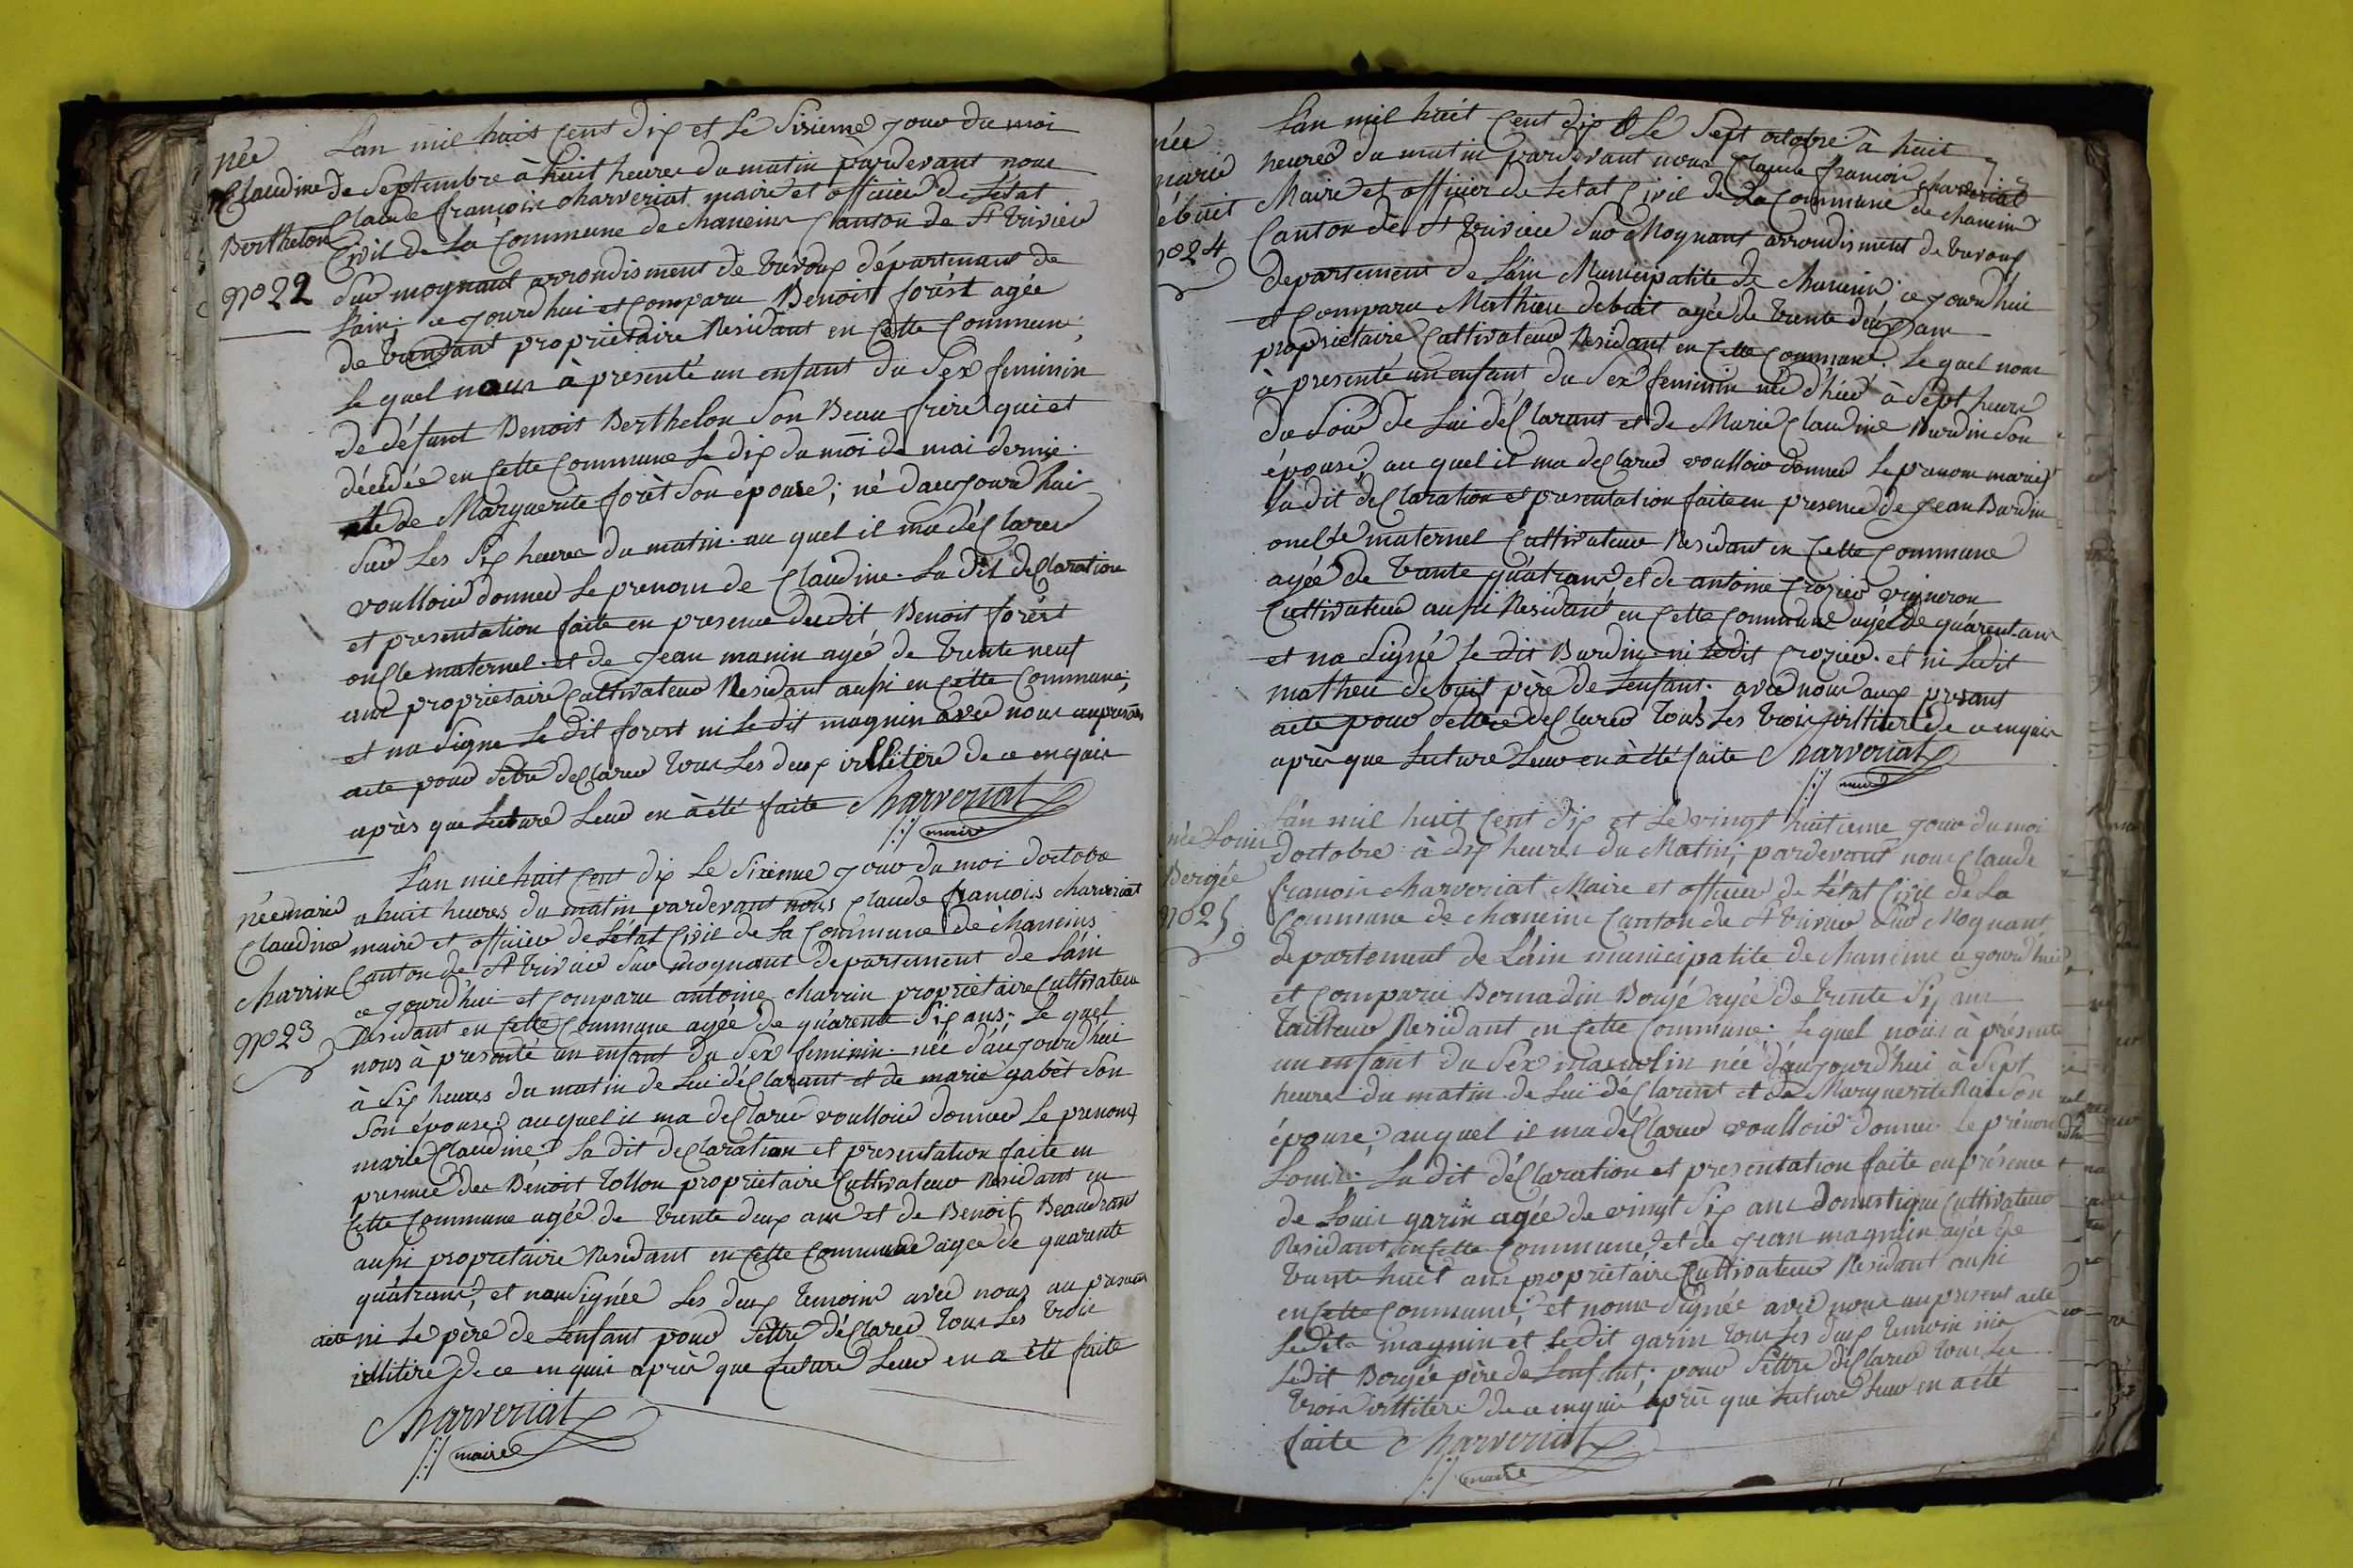 née
Claudine
Berthelon
No 22
L'an mil huit Cent dix et Le Sixieme jour du moi
de Septembre à huit heures du matin pardevant nous
Claude françois charveriat maire et officier de L'etat
Civil de La Commune de chaneins Canton de St Trivier
Sur mognant arrondisment de trevoux département de
Lain; ce jourd'hui et Comparu Benoit forést agée
de propriétaire Residant en Cette Commune,
Le quel nous à présenté un enfant du Sex feminin
de défunt Benoit Berthelon Son Beau frère qui et
décédée en Cette Commune Le dix du moi de mai dernie.
et de Marguerite forèt Son épouse; né d'aujourd'hui
Sur Les Six heures du matin. au quel il ma déClarer
voulloir donner Le prenom de Claudine. La dit deClaration
et presentation faite en presence dudit Benoit forést
onCle maternel. et de Jean manin agé de trente neuf
ans propriétaire Cultivateur Residant aussi en Cette Commune,
et na Signe Le dit forest ni Le dit magnin avec nous au presant
acte pour Sètre déClarer tous Les deux illitéré de ce enquis
après que Lecture Leur en à été faite Charveriat
maire
née marie
Claudine
Marrin
No 23
L'an mil huit Cent dix Le Sixieme jour du moi d'octobre
a huit heures du matin pardevant nous Claude francois charveriat
maire et officier de L'état Civil de La Commune de chaneins
Canton de St trivier Sur mognant departement de Lain
ce jourd'hui et Comparu antoine Marrin propriétaire Cultivateur
Residant en Cette Commune agée de quarente Six ans; Le quel
nous à presenté un enfant du Sex feminin. née d'aujourd'hui
à Six heures du matin de Lui déClarant et de marie gabèt Son
Son épouse; au quel il ma deClarer voulloir donner Le prenom
marie Claudine. La dit deClaration et presentation faite en
presence de Benoit tollon propriétaire Cultivateur Residant en
Cette Commune agée de trente deux ans et de Benoit Beaudrans
aussi propriétaire Residant en Cette Commune agée de quarente
quatrans; et non Signée Les deux temoins avec nous au presant
acte ni Le père de L'enfant pour Sèttre déClarer tous Les trois
illitéré de ce enquis après que Lecture Leur en a été faite
Charveriat
maire
née
marie
ebuit
no 24
L'an mil huit Cent dix et Le Sept octobre à huit
heures du matin pardevant nous Claude francois charveriat
Maire et officier de Letat Civil de La Commune de chanein
Canton de St Trivier Sur Mognant arrondisment de trevoux
departement de Lain Municipalité de Chanein; ce jourd'hui
et Comparu Mathieu debuit agée de trente deux ans
propriétaire Cultivateur Residant en Cette Commune. Le quel nous
à presenté un enfant du Sex feminin née d'hier à Sept heure
du Soir de Lui déClarant et de Marie Claudine Burdin Son
épouse; au quel il ma deClarer voulloir donner Le prenom marie
La dit deClaration et presentation faite en presence de Jean Burdin
onCle maternel Cultivateur Residant en Cette Commune
agée de trante quatrans; et de antoine Crozier vigneron
Cultivateur aussi Residant en Cette Commune agée de quarent ans
et na Signé Le dit Burdin ni Ledit Crozier. et ni Ledit
matheu debuit père de Lenfant. avec nous aux presant
acte pour Settre deClarer tous Les trois illitéré de ce enquis
après que Lecture Leur en à été faite Charveriat
maire
née Louis
Bergée
No 25
L'an mil huit Cent dix et Le vingt huitieme jour du moi
doctobre à dix heures du Matin; pardevant nous Claude
francois Charveriat Maire et officier de L'état Civil de La
Commune de Chaneins Canton de St trivier Sur Mognant,
departement de L'ain municipatite de Chaneins ce jourd'hui
et Comparu Bernadin Bergé agée de trente Six ans
tailleur Residant en Cette Commune. Le quel nous à présenté
un enfant du Séx masculin née d'aujourd'hui à Sept
heures du matin de Lui déClarant et de Marguerite Son
épouse; au quel il ma déClarer voulloir donner Le prénom
Louis. La dit déClaration et presentation faite en présence
de Louis garin agée de vingt Six ans domestique Cultivateur
Residant en Cette Commune et de Jean magnin agée de
trante huit ans propriétaire Cultivateur Residant aussi
en Cette Commune; et nomt Signée avec nous au present acte
Ledit magnin et Ledit garin tous Les deux temoin ni
Ledit Bergée père de Lenfant; pour Sèttre déClarer tous Les
trois illitéré de ce enquis après que Lecture Leur en a été
faite Charveriat
maire